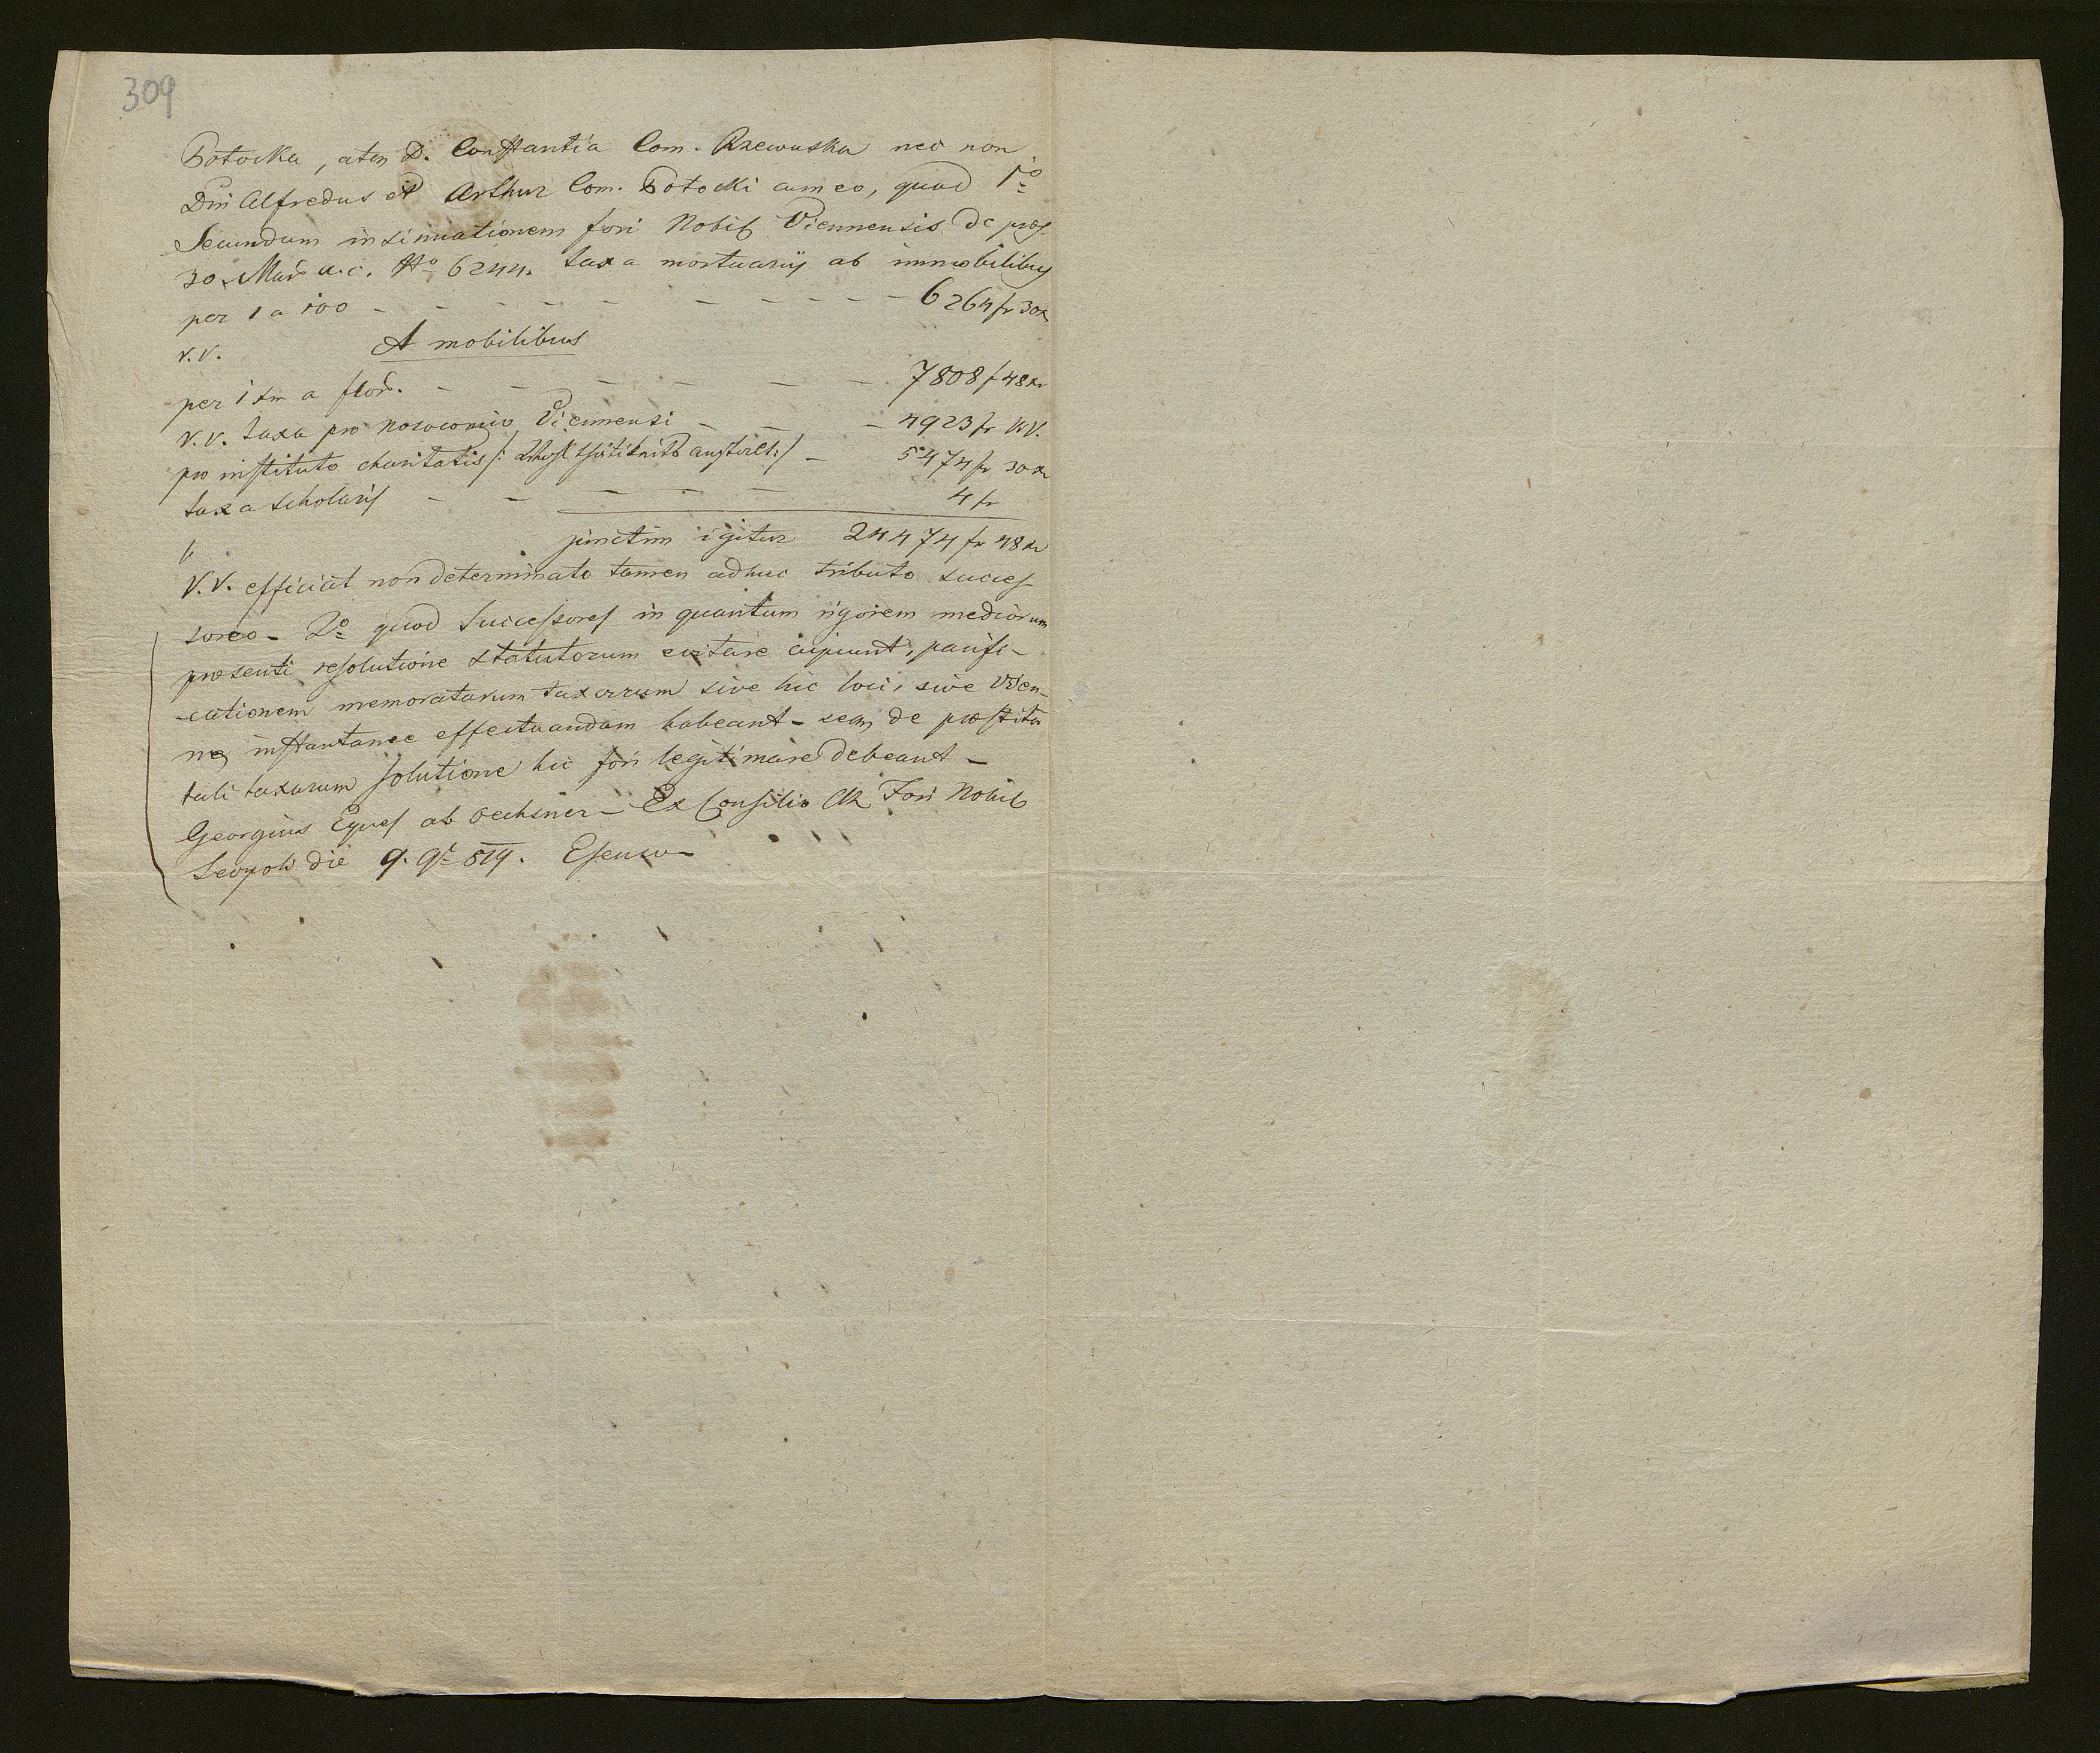 309
Potocka, atq D. Constantia Com. Rzewuska nec non
Dni Alfredus et Arthur Com. Potocki cum eo, quod 1o
Secundum insinuationem fori Nobil Viennensis de praes.
30. Maii a.c. No 6244. taxa mortuarii ab immobilibus
per 1 a 100 - - - - - - - - - - 6264 fr 30 xr
V.V. A mobilibus
per 1 xr a flor. - - - - - - 7808 f 48 xr
V.V. taxa pro nosocomio Viennensi - - - 4923 fr W.V.
pro instituto charitatis /: :/ - 5474 fr 30 xr
taxa scholaris - - - - - 4 fr
junctim igitur 24474 fr 48 xr
V.V. efficiat non determinato tamen adhuc tributo succes
soreo - 2o quod Successores in quantum rigorem mediorum
praesenti resolutione statutorum evitare cupiunt, pacifi-
-cationem memoratarum taxarum sive hic loci, sive Vien-
nae instantanee effectuandam habeant - seq de praestita
tali taxarum solutione hic fori legitimare debeant -
Georgius Eques ab Oechsner - Ex Consilio CR Fori Nobil
Leopoli die 9. 9b 819.